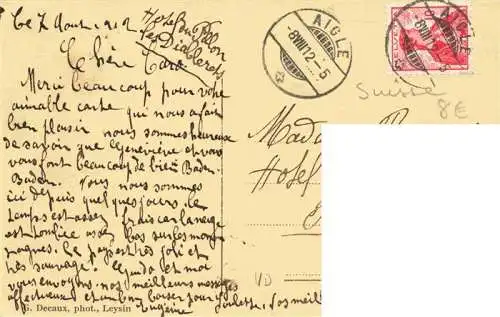 Le 7 Août 1912
Hôtel Pavillon
les Diablerets
Chère
Merci beaucoup pour votre
aimable carte qui nous a fait
bien plaisir nous sommes heureuse
de savoir que Geneviève et vous
vous font beaucoup de bien Baden-
Baden. Nous nous sommes
ici depuis quelques jours. Le
temps est assez frais car la neige
est tombée assez bas sur les monta
gnes. Le pays est très joli et
très sauvage. et moi
vous envoyons nos meilleurs messages
affectueux et un bon baiser pour
Eugénie
G. Decaux, phot., Leysin
AIGLE
-8VIII12-5
AIGLE
HELVETIA
Suisse
8€
Madame
Hotel